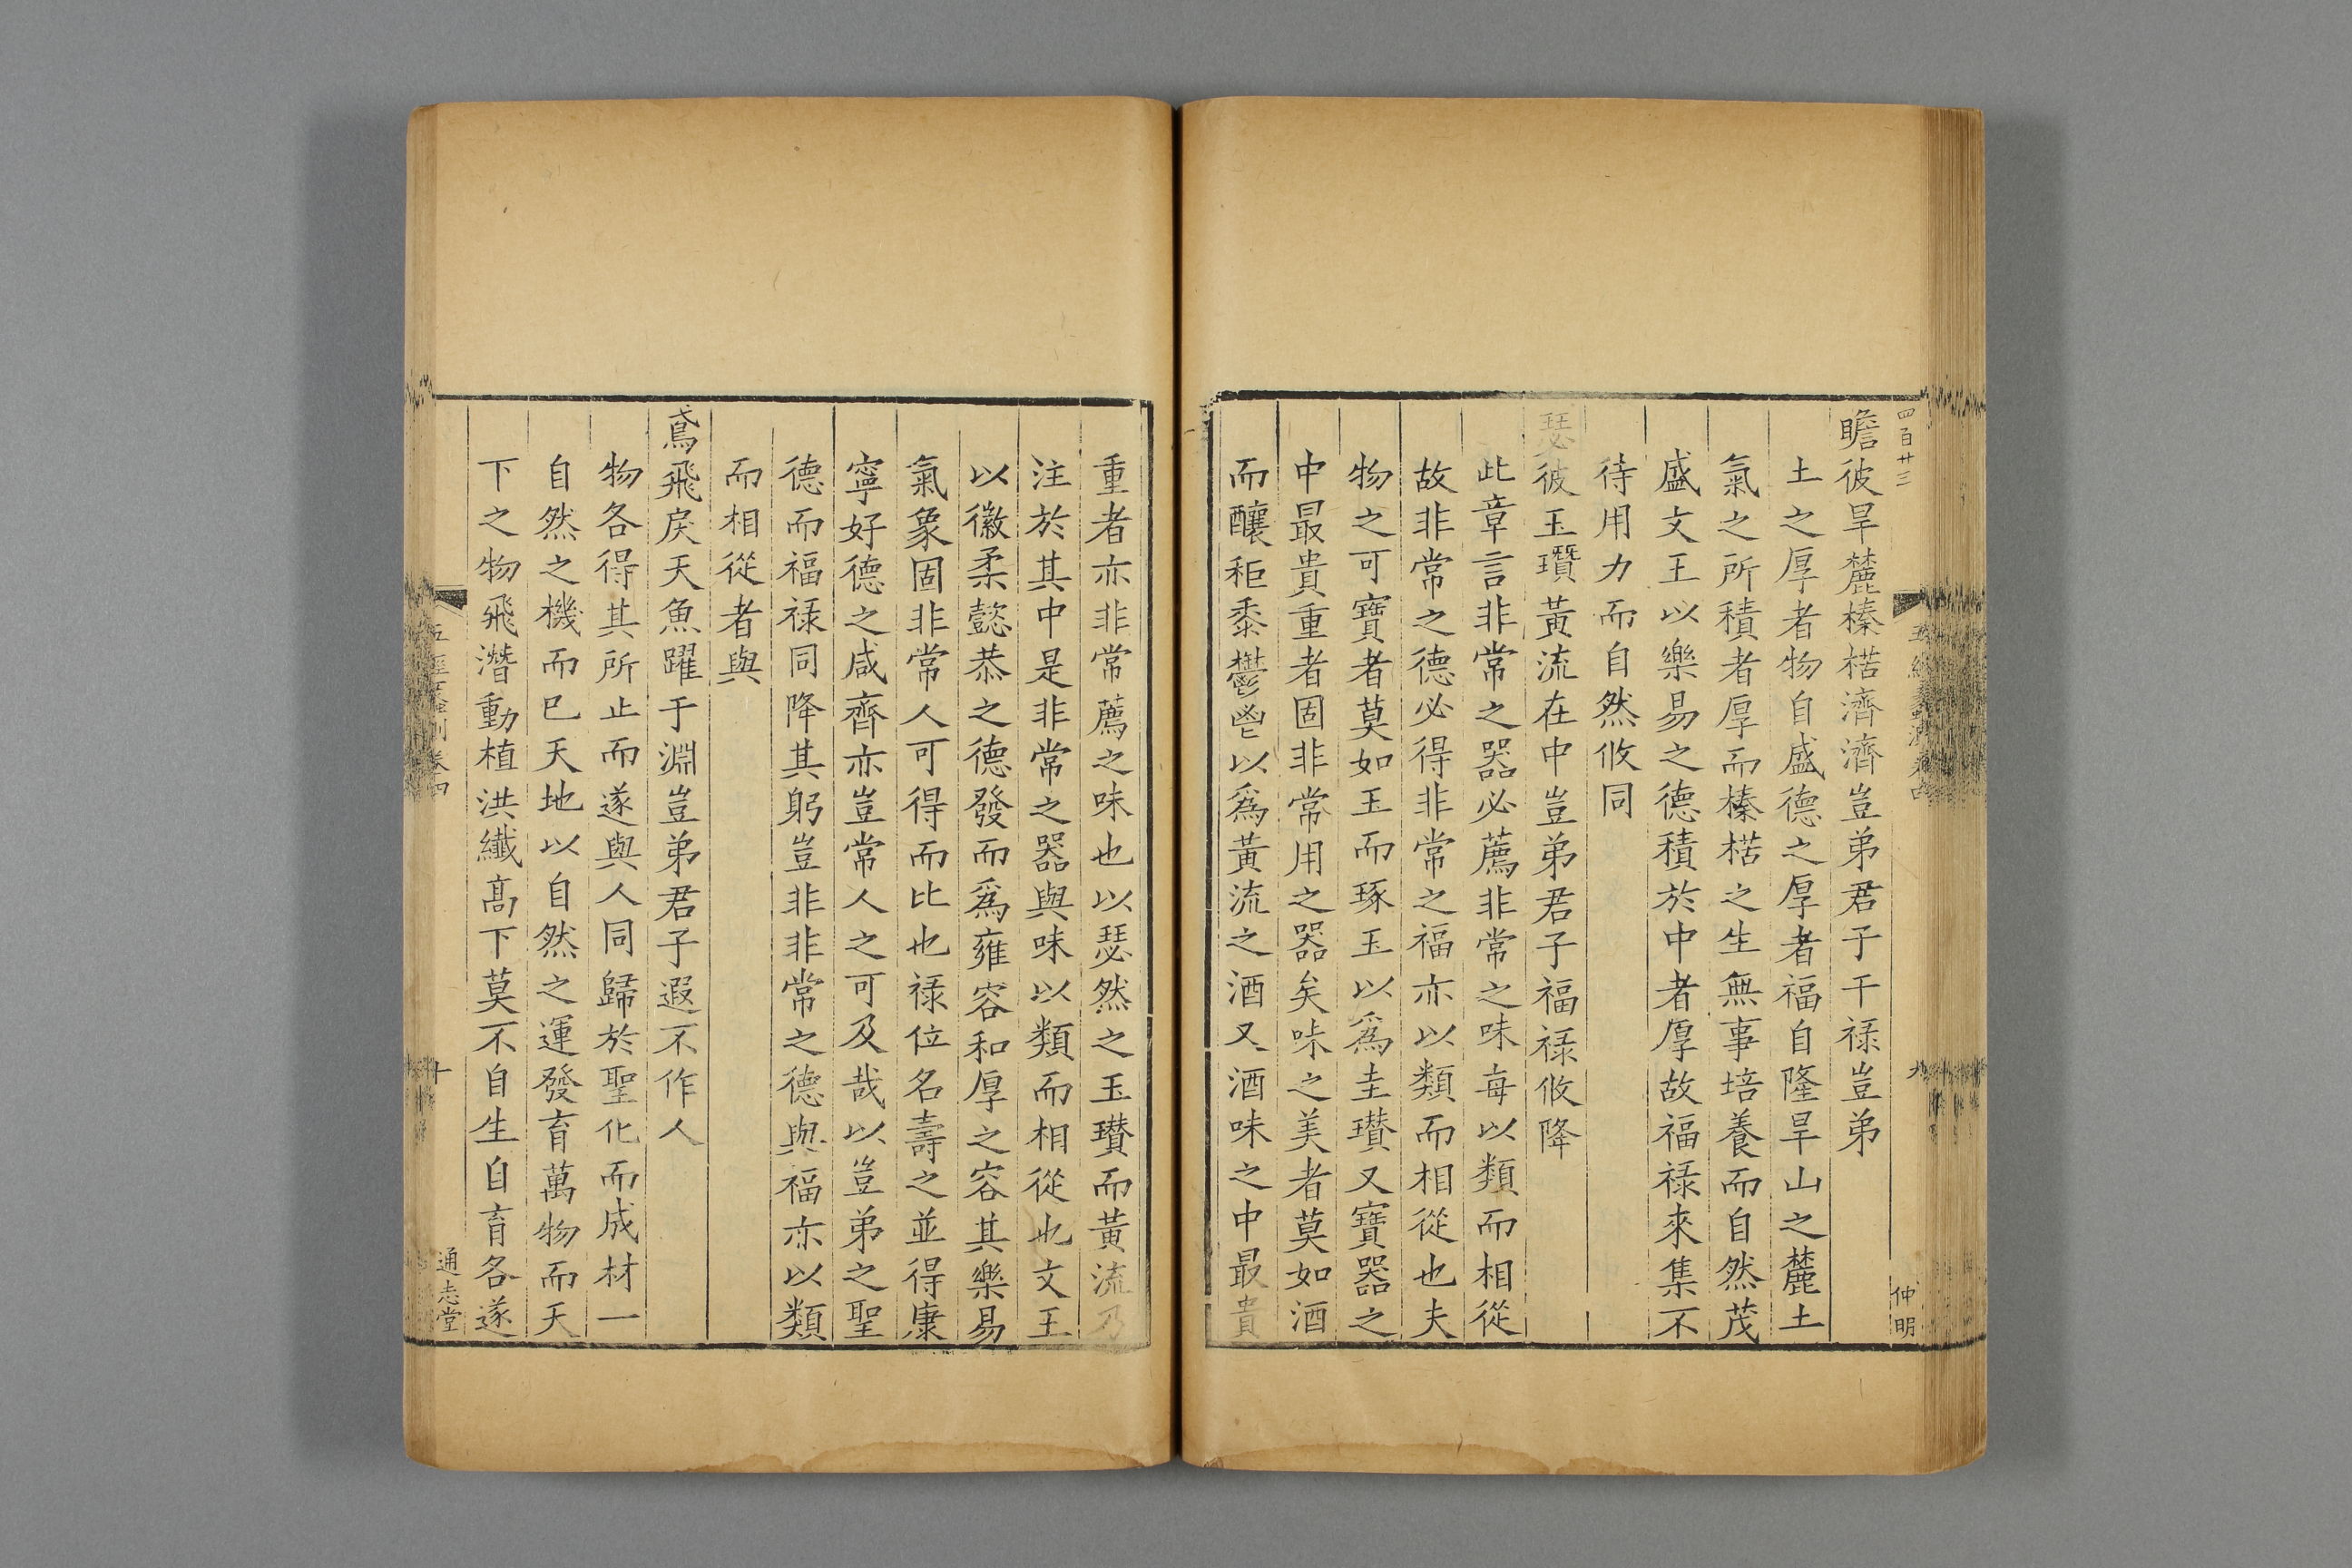 四百廿三
仲明
瞻彼旱麓榛楛濟濟豈弟君子干禄豈弟
土之厚者物自盛德之厚者福自隆旱山之麓土
氣之所積者厚而榛楛之生無事培養而自然茂
盛文王以樂易之德積於中者厚故福禄來集不
待用力而自然攸同
瑟彼玉瓚黃流在中豈弟君子福禄攸降
此章言非常之器必薦非常之味每以類而相從
故非常之德必得非常之福亦以類而相從也夫
物之可寶者莫如玉而琢玉以為圭瓚又寶器之
中最貴重者固非常用之器矣味之美者莫如酒
而釀秬黍鬱鬯以為黃流之酒又酒味之中最貴
重者亦非常薦之味也以瑟然之玉瓚而黃流乃
注於其中是非常之器與味以類而相從也文王
以徽柔懿恭之德發而為雍容和厚之容其樂易
氣象固非常人可得而比也禄位名壽之並得康
寧好德之咸齊亦豈常人之可及哉以豈弟之聖
德而福禄同降其躬豈非非常之德與福亦以類
而相從者與
鳶飛戾天魚躍于淵豈弟君子遐不作人
物各得其所止而遂與人同歸於聖化而成材一
自然之機而巳天地以自然之運發育萬物而天
下之物飛潛動植洪纖高下莫不自生自育各遂
十
通志堂